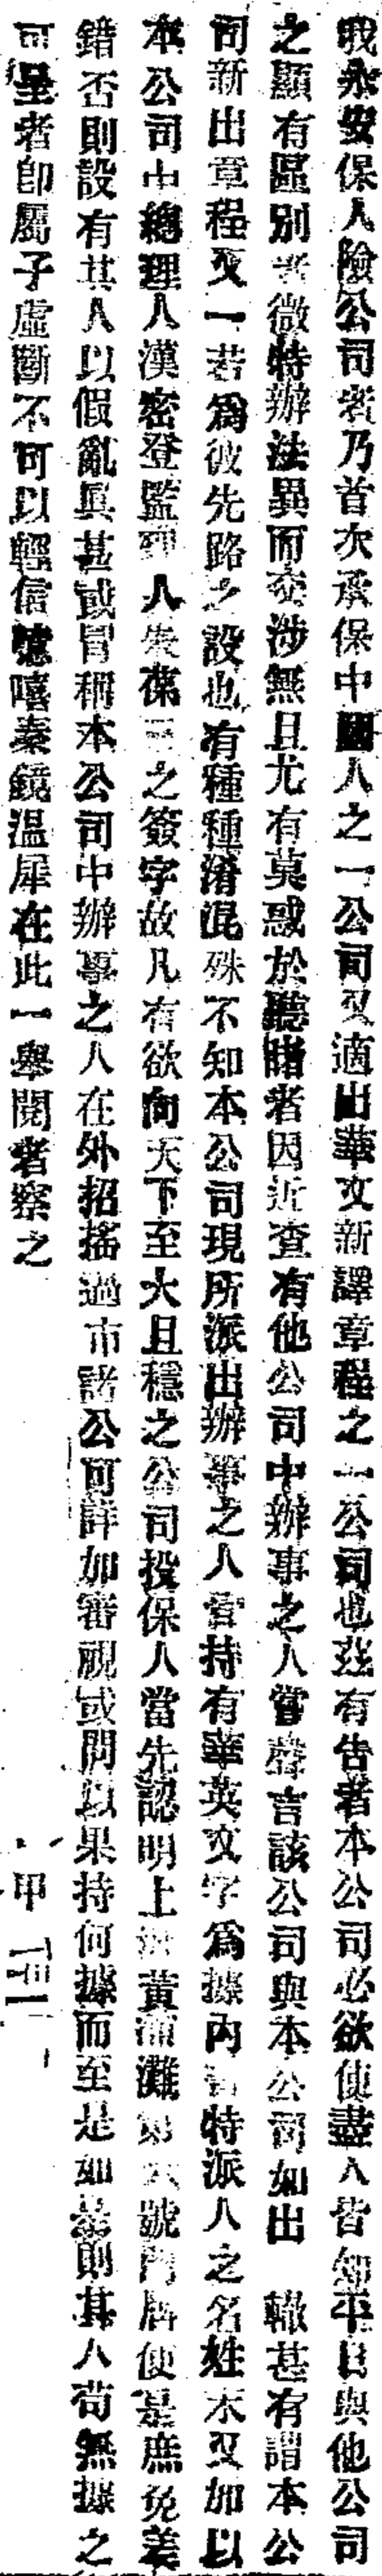 我永安保人險公司者乃首次承保中國人之一公司又適出華文新譯章程之一公司也茲有告者本公司必欲使盡人皆知平日與他公司
之顯有區別者微特辦法異而交涉無且尤有莫惑於聽睹者因近查有他公司中辦事之人嘗聲言該公司與本公司如出 轍甚有謂本公
司新出章程又一若爲彼先路之設也有種種淆混殊不知本公司現所派出辦事之人嘗持有華英文字爲據內書特派人之名姓末又加以
本公司中總理人漢密登監理人朱葆三之簽字故凡有欲向天下至大且穩之公司投保人當先認明上海黃浦灘第六號門牌便是庶免差
錯否則設有其人以假亂眞甚或冒稱本公司中辦事之人在外招搖過市諸公可詳加審視或問以果持何據而至是如是則其人苟無據之
可呈者卽屬子虛斷不可以輕信噫嘻秦鏡溫犀在此一舉閱者察之
甲